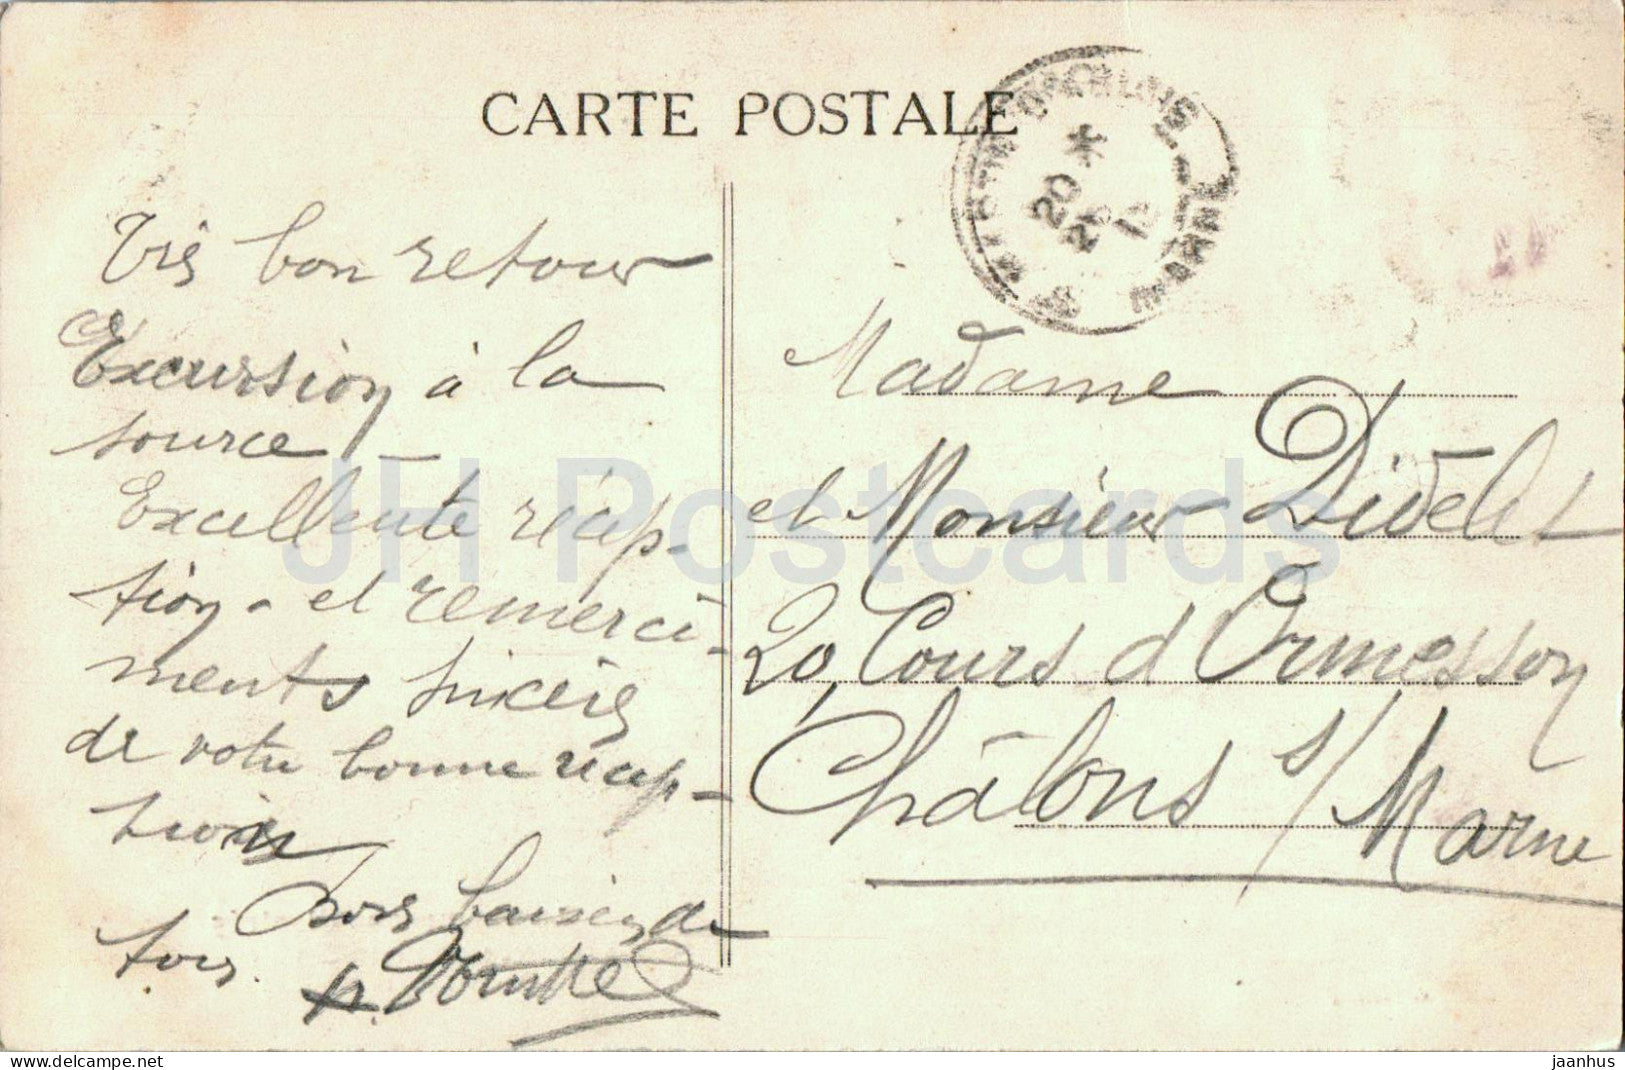 CARTE POSTALE
Très bon retour
Excursion à la
source –
Excellente récep-
tion - et remerci-
ments sincères
de votre bonne récep-
tion
Bons baisers de
tous.
Madame
et Monsieur Didelet
20, Cours d'Ormesson
Châlons s/Marne
20 *
MARNE
JH Postcards
www.delcampe.net
jaanhus